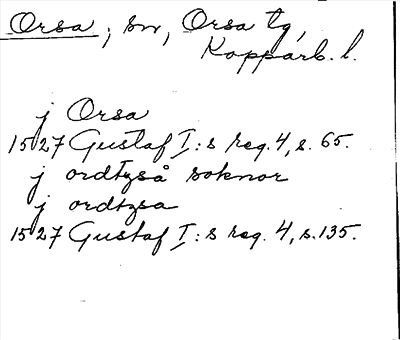 Orsa, sn, Orsa tg,
Kopparb. l.
j Orsa
1527 Gustaf I:s reg. 4, s. 65.
j ordtzså soknor
j ordtzsa
1527 Gustaf I:s reg. 4, s. 135.